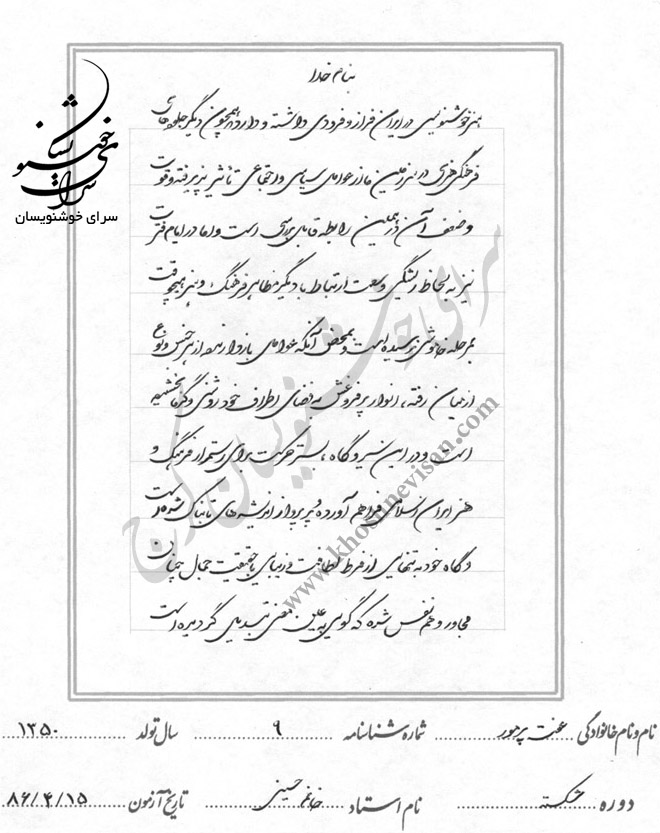 بنام خدا
هنر خوشنویسی در ایران فراز و فرودی داشته و دارد و همچون دیگر جلوه‌های
فرهنگی هنری در سرزمین ما از عوامل سیاسی و اجتماعی تأثیر پذیرفته و قوت
و ضعف آن در همین رابطه قابل بررسی است و اما در ایام فترت
نیز به لحاظ بستگی و وسعت ارتباط با دیگر مظاهر فرهنگ و هنر هیچوقت
بمرحله خاموشی نرسیده است و بمحض آنکه عوامل بازدارنده از هر جنس و نوع
از میان رفته، انوار پر فروغش به فضای اطراف خود روشنی و گرما بخشیده
است و در این سیر و گاه، بستر حرکت برای استمرار فرهنگ و
هنر ایران اسلامی فراهم آورده و پر پرواز اندیشه‌های تابناک شده است
و گاه خود به تنهایی از فرط لطافت و زیبایی با حقیقت جمال چنان
مجاور و هم نفس شده که گویی به عین معنی تبدیل گردیده است
سرای خوشنویسان
سرای خوشنویسان کرج
www.khoshnevisan.com
نام و نام خانوادگی عفت پرمور شماره شناسنامه ۹ سال تولد ۱۳۵۰
دوره شکسته نام استاد خانم حسینی تاریخ آزمون ۸۶/۴/۱۵